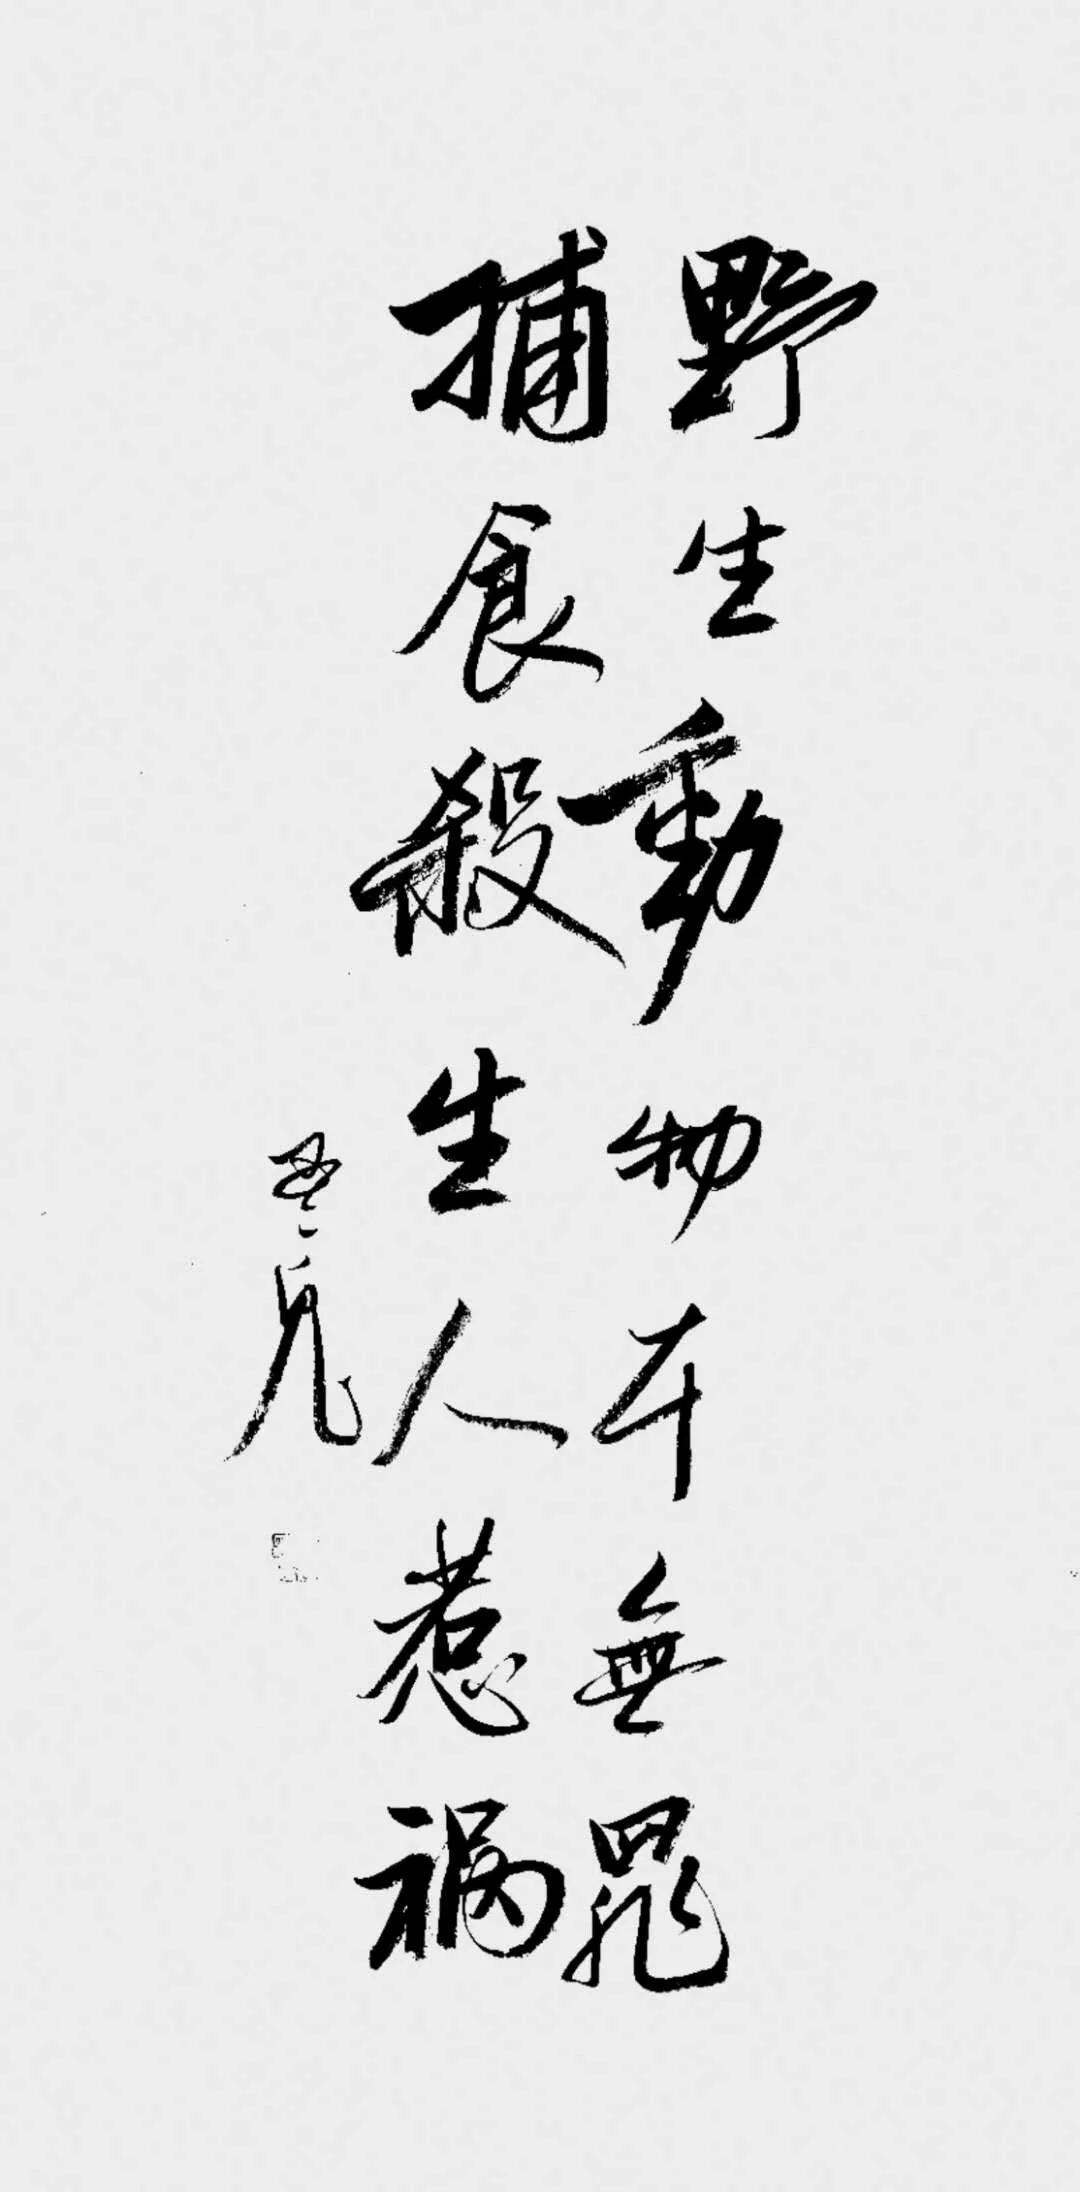 野生動物本無罪
捕食殺生人惹禍